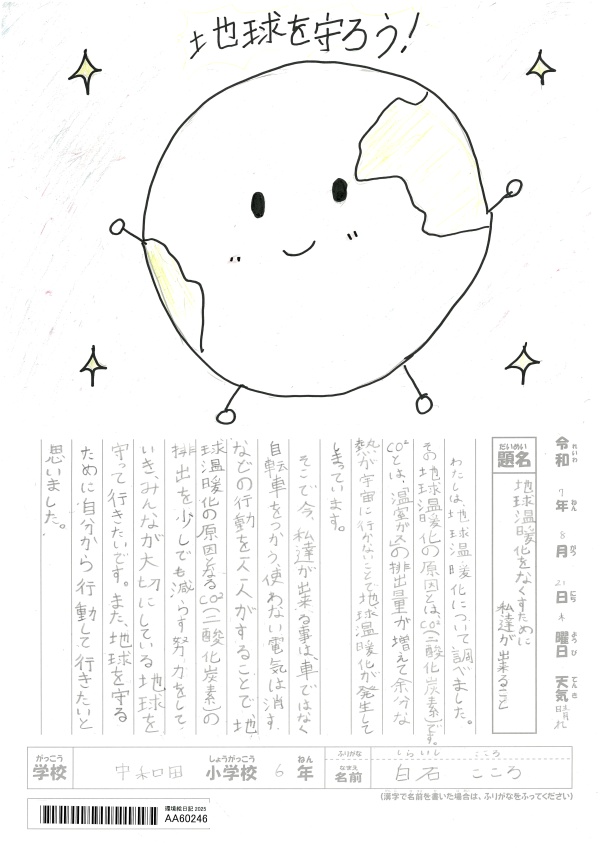 地球を守ろう!
令和7年8月21日木曜日 天気晴れ
れいわ ねん がつ にち ようび てんき
だいめい
題名
地球温暖化をなくすために
私達が出来ること
わたしは、地球温暖化について調べました。
その地球温暖化の原因とは、CO²(二酸化炭素)です。
CO²とは、「温室がス」の排出量が増えて余分な
熱が宇宙に行かないことで、地球温暖化が発生して
しまっています。
そこで今、私達が出来る事は、車ではなく
自転車をつかう、使わない電気は消す、
などの行動を一人一人がすることで、地
球温暖化の原因となるCO²(二酸化炭素)の
排出を少しでも減らす努力をして
いき、みんなが大切にしている地球を
守って行きたいです。また、地球を守る
ために自分から行動して行きたいと
思いました。
がっこう しょうがっこう ねん
学校 中和田 小学校 6年
ふりがな しらいし こころ
なまえ
名前 白石 こころ
(漢字で名前を書いた場合は、ふりがなをふってください)
環境絵日記 2025
AA60246